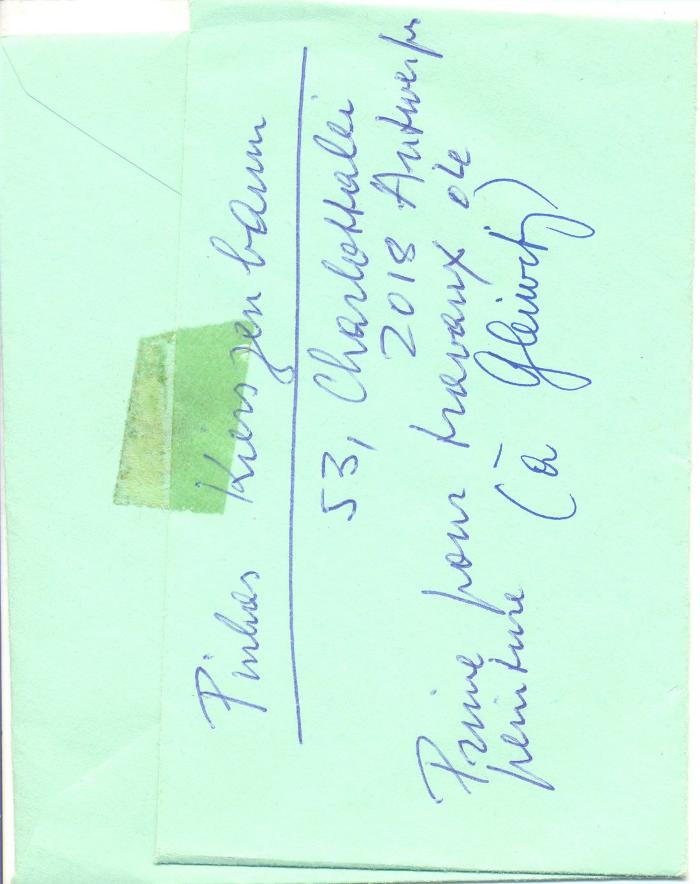 Pinhas Kierszenbaum
53, Charlottalei
2018 Antwerpn
Prime pour travaux de
peinture (à Gleiwitz)